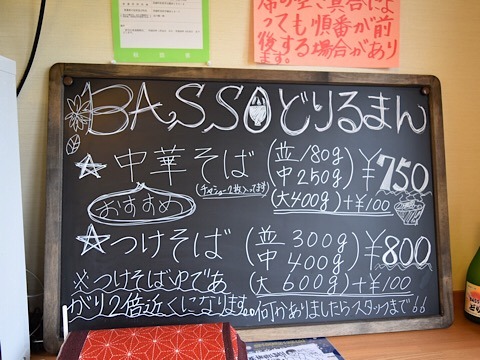 席の空き具合によ
っても順番が前
後する場合があり
ます。
BASSOどりるまん
☆中華そば
(チャーシュー2枚入ってます)
おすすめ
(並/180g)
(中250g)
(大400g)+¥100
¥750
☆つけそば
(並300g)
(中400g)
(大600g)+¥100
¥800
※つけそばゆであ
がり2倍近くになります。何かありましたらスタッフまで